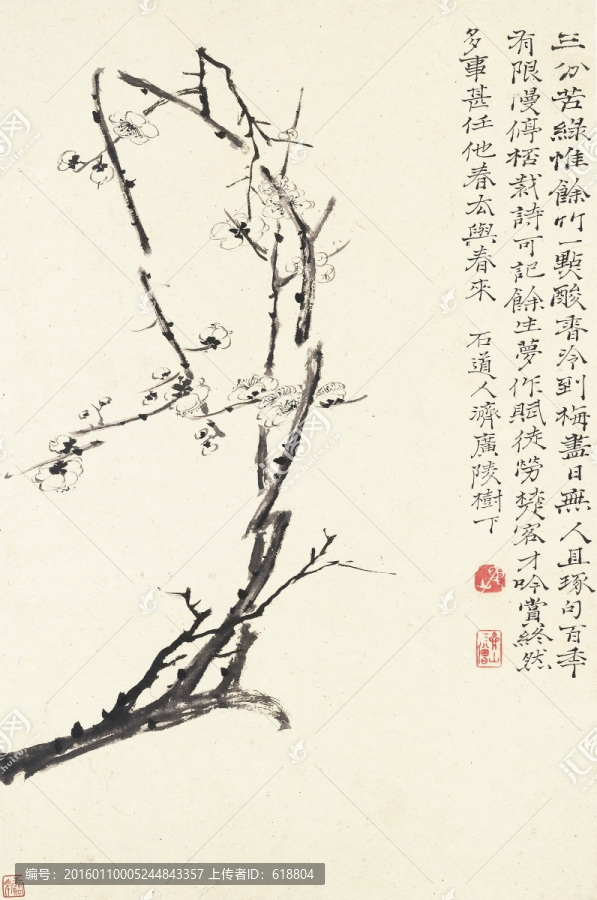 三分苦綠惟餘竹一點酸香冷到梅盡日無人且琢句百年
有限慢停桮裁詩可記餘生夢作賦徒勞楚客才吟賞終然
多事甚任他春去與春來 石道人濟廣陵樹下
编号：20160110005244843357 上传者ID：618804